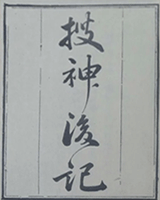 搜神後記